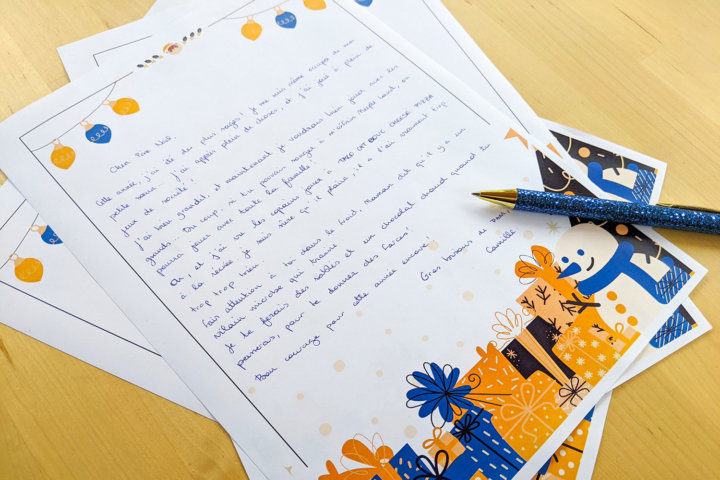 Cher Père Noël,
Cette année, j'ai été des plus sages ! Je me suis même occupée de ma
petite sœur, j'ai appris plein de choses, et j'ai joué à plein de
jeux de société !
J'ai bien grandit, et maintenant je voudrais bien jouer avec les
grands... Du coup, si tu pouvais songer à m'offrir on
pourra jouer avec toute la famille !
Ah, et j'ai vu les copains jouer à TACO CAT BOUC CHEESE PIZZA
à la récrée, je suis sûre qu'il plaira, il a l'air vraiment trop
trop trop bien !
Fais attention à toi dans le froid, maman dit qu'il y a un
vilain microbe qui traîne !
Je te ferais des sablés et un chocolat chaud quand tu
passeras, pour te donner des forces !
Bon courage pour cette année encore !
Gros bisous du
Camille